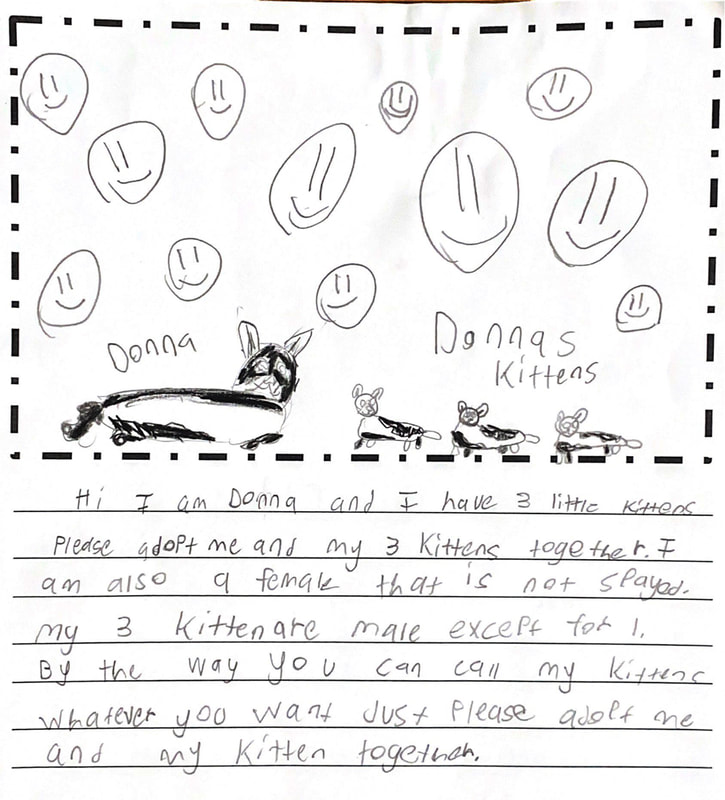 Donna
Donnas
Kittens
Hi I am Donna and I have 3 little kittens
Please adopt me and my 3 Kittens together. I
am also a female that is not spayed.
my 3 Kitten are male except for 1.
By the way you can call my kittens
whatever you want Just Please adopt me
and my Kitten together.